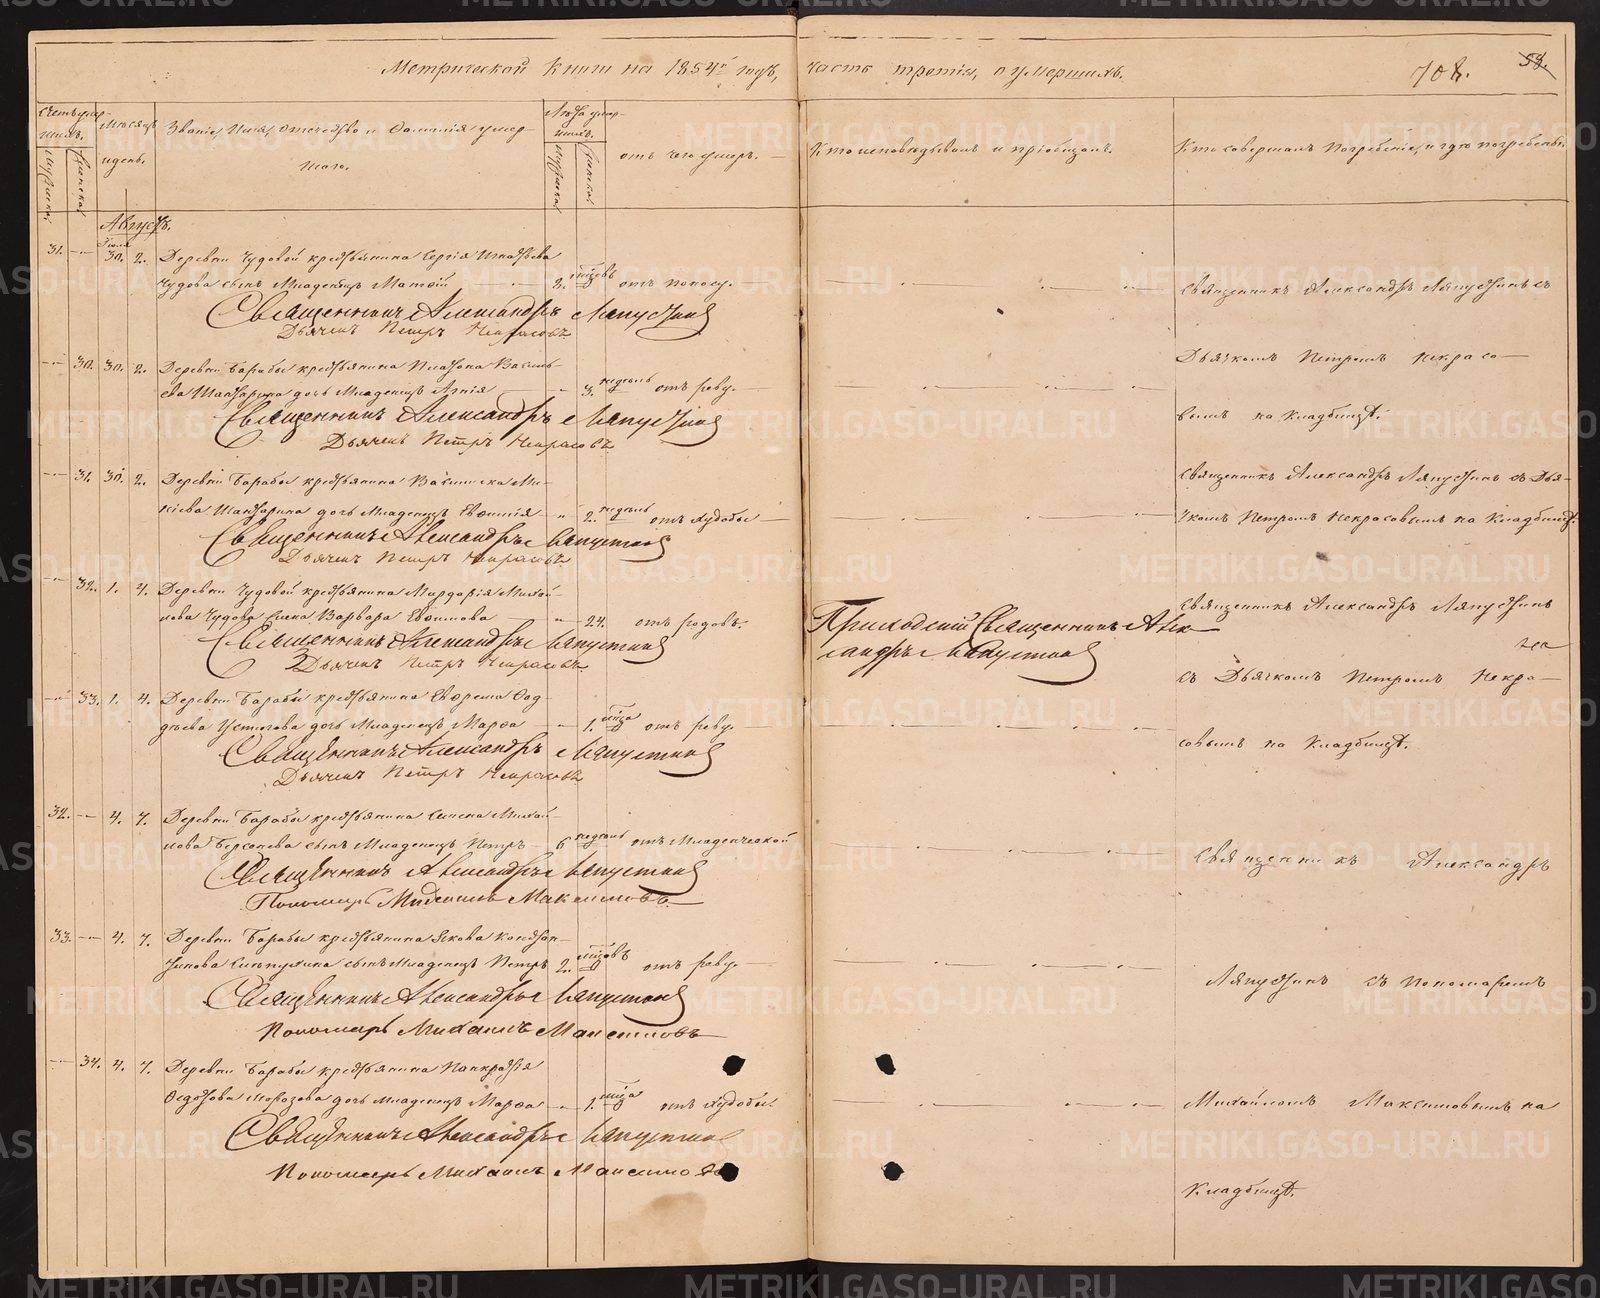 Метрической книги на 1854й годъ, часть третія, о умершихъ.
708. 53.
Счетъ умершихъ. Мѣсяцъ и день. Званіе, имя, отечество и фамилія умершаго. Лѣта умершихъ. отъ чего умеръ. Кто исповѣдывалъ и пріобщалъ. Кто совершалъ погребеніе, и гдѣ погребены.
Мужеска. Женска. Мужеска. Женска.
Августъ.
Іюля
31. — 30. 2. Деревни Чудовой крестьянина Сергія Игнатьева
Чудова сынъ младенецъ Матѳій 2. мѣсяцовъ отъ поносу.
Священникъ Александръ Ляпустинъ
Дьячекъ Петръ Некрасовъ
— 30. 30. 2. Деревни Барабы крестьянина Платона Василь-
ева дочь младенецъ 3. недѣль отъ реву.
Священникъ Александръ Ляпустинъ
Дьячекъ Петръ Некрасовъ
— 31. 30. 2. Деревни Барабы крестьянина
дочь младенецъ Евфимія 2. недѣль отъ худобы
Священникъ Александръ Ляпустинъ
Дьячекъ Петръ Некрасовъ
— 32. 1. 4. Деревни Чудовой крестьянина Мардарія Михай-
лова Чудова жена Варвара Евфимова 24. отъ родовъ.
Священникъ Александръ Ляпустинъ
Дьячекъ Петръ Некрасовъ
— 33. 1. 4. Деревни Барабы крестьянина Ефрема Фад-
дѣева Устюгова дочь младенецъ Марѳа 1. мѣсяца отъ реву.
Священникъ Александръ Ляпустинъ
Дьячекъ Петръ Некрасовъ
32. — 4. 7. Деревни Барабы крестьянина Михай-
лова Берсенева сынъ младенецъ Петръ 6 недѣль отъ младенческой
Священникъ Александръ Ляпустинъ
Пономарь Михаилъ Максимовъ
33. — 4. 7. Деревни Барабы крестьянина Якова Кондрат-
сынъ младенецъ Петръ 2. мѣсяцовъ отъ реву.
Священникъ Александръ Ляпустинъ
Пономарь Михаилъ Максимовъ
— 34. 4. 7. Деревни Барабы крестьянина Панкратія
Федотова Морозова дочь младенецъ Марѳа 1. мѣсяца отъ худобы.
Священникъ Александръ Ляпустинъ
Пономарь Михаилъ Максимовъ
Приходскій Священникъ Алек-
сандръ Ляпустинъ
Священникъ Александръ Ляпустинъ съ
Дьячкомъ Петромъ Некрасо-
вымъ на кладбищѣ.
Священникъ Александръ Ляпустинъ съ Дья-
чкомъ Петромъ Некрасовымъ на кладбищѣ.
Священникъ Александръ Ляпустинъ
съ Дьячкомъ Петромъ Некра-
совымъ на кладбищѣ.
Священникъ Александръ
Ляпустинъ съ пономаремъ
Михайломъ Максимовымъ на
кладбищѣ.
METRIKI.GASO-URAL.RU